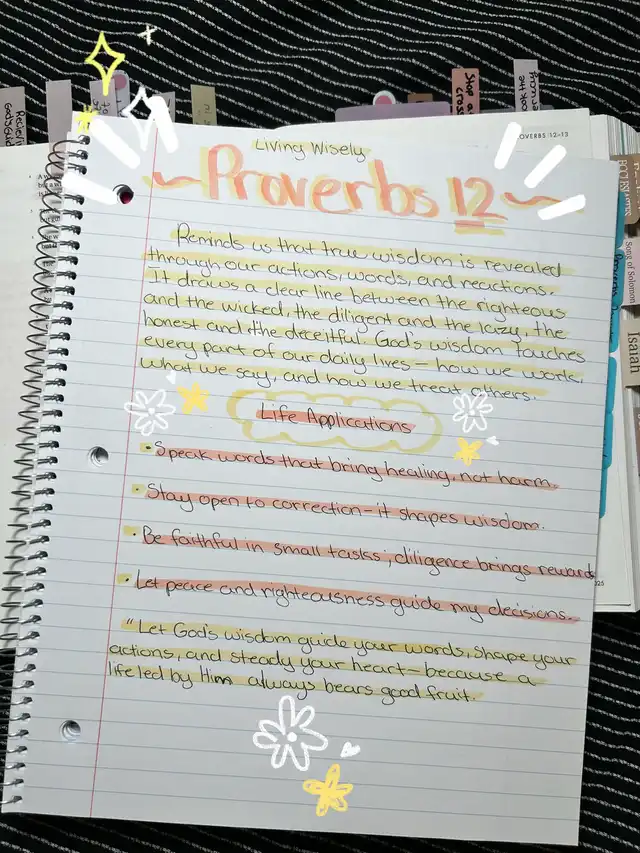 Living Wisely
~Proverbs 12~
Reminds us that true wisdom is revealed
through our actions, words, and reactions.
It draws a clear line between the righteous
and the wicked, the diligent and the lazy, the
honest and the deceitful. God's wisdom touches
every part of our daily lives — how we work,
what we say, and how we treat others.
Life Applications
• Speak words that bring healing, not harm.
• Stay open to correction - it shapes wisdom.
• Be faithful in small tasks; diligence brings rewards
• Let peace and righteousness guide my decisions.
"Let God's wisdom guide your words, shape your
actions, and steady your heart — because a
life led by Him always bears good fruit.
OVERBS 12-13
Song of Solomon
Isaiah